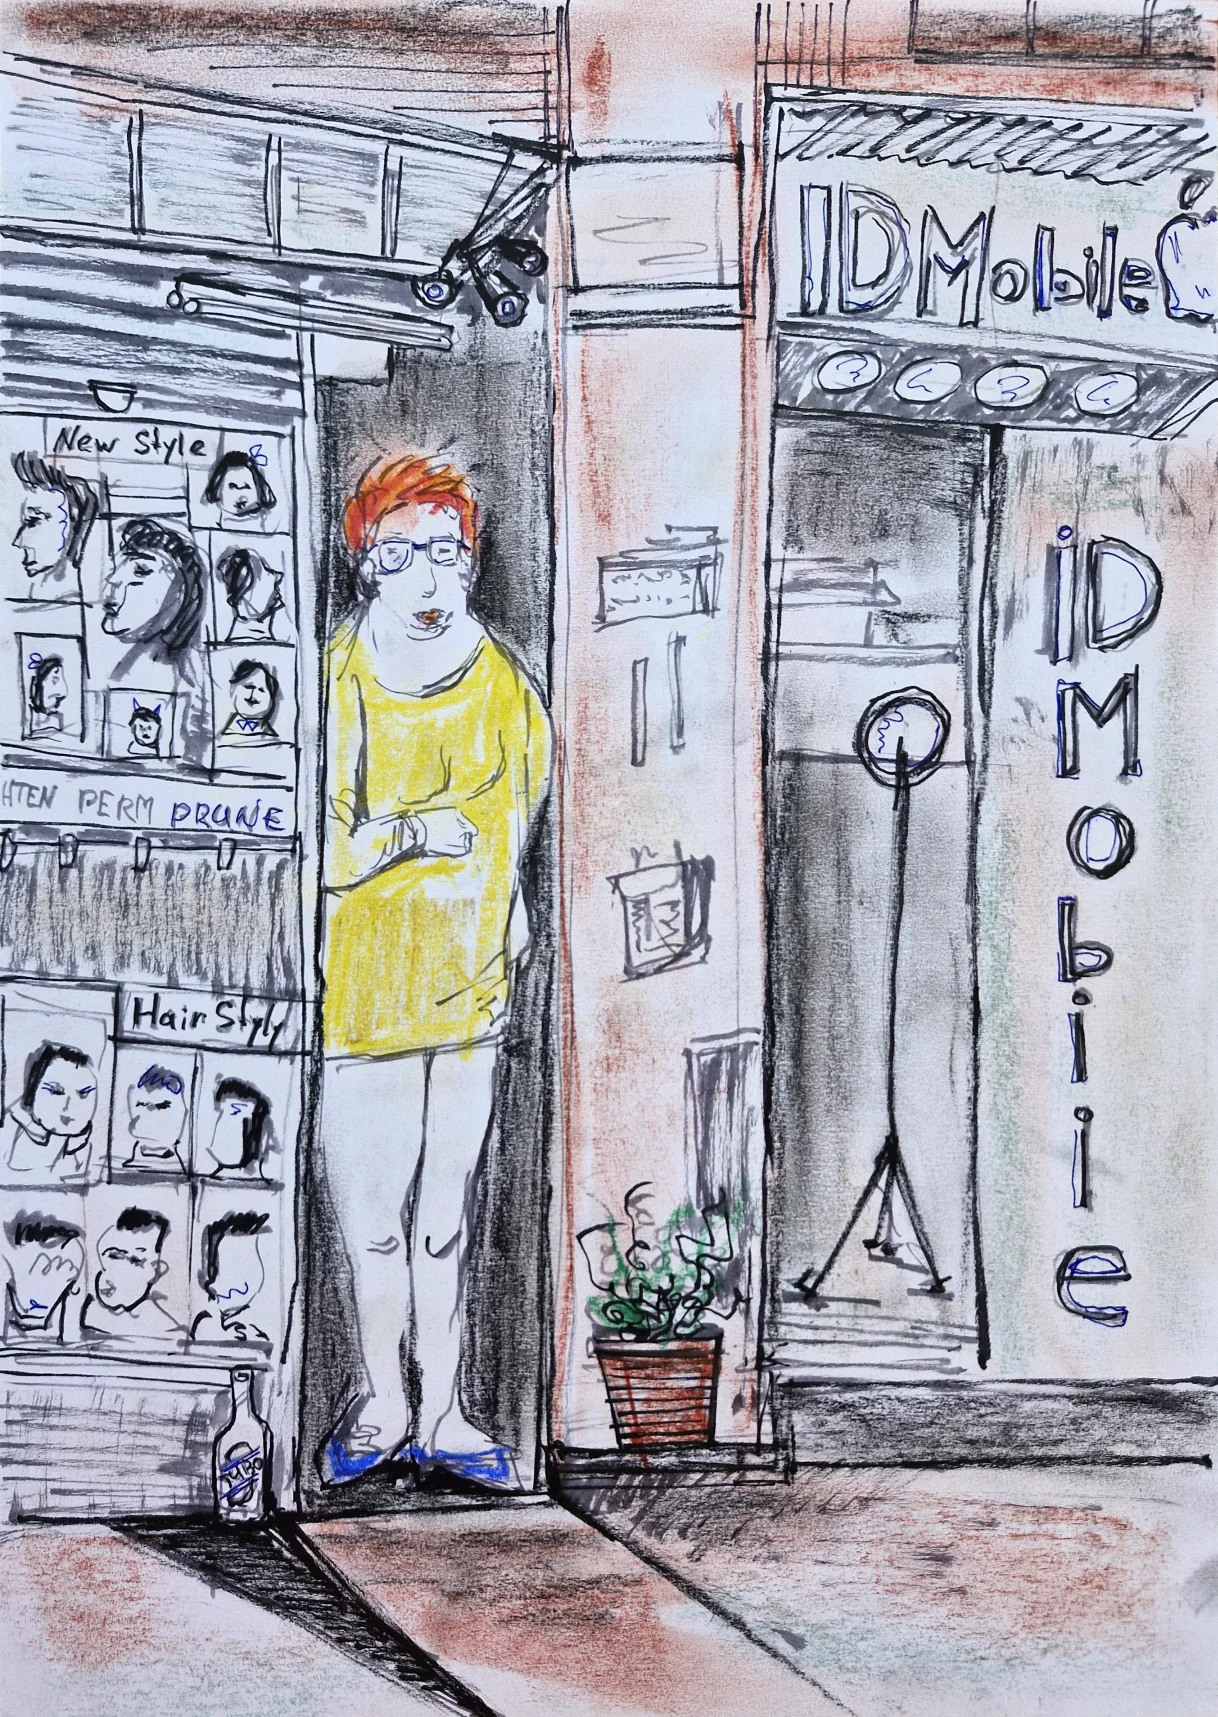 New Style
HTEN PERM PRUNE
Hair Styly
ID Mobile C
iD Mobile